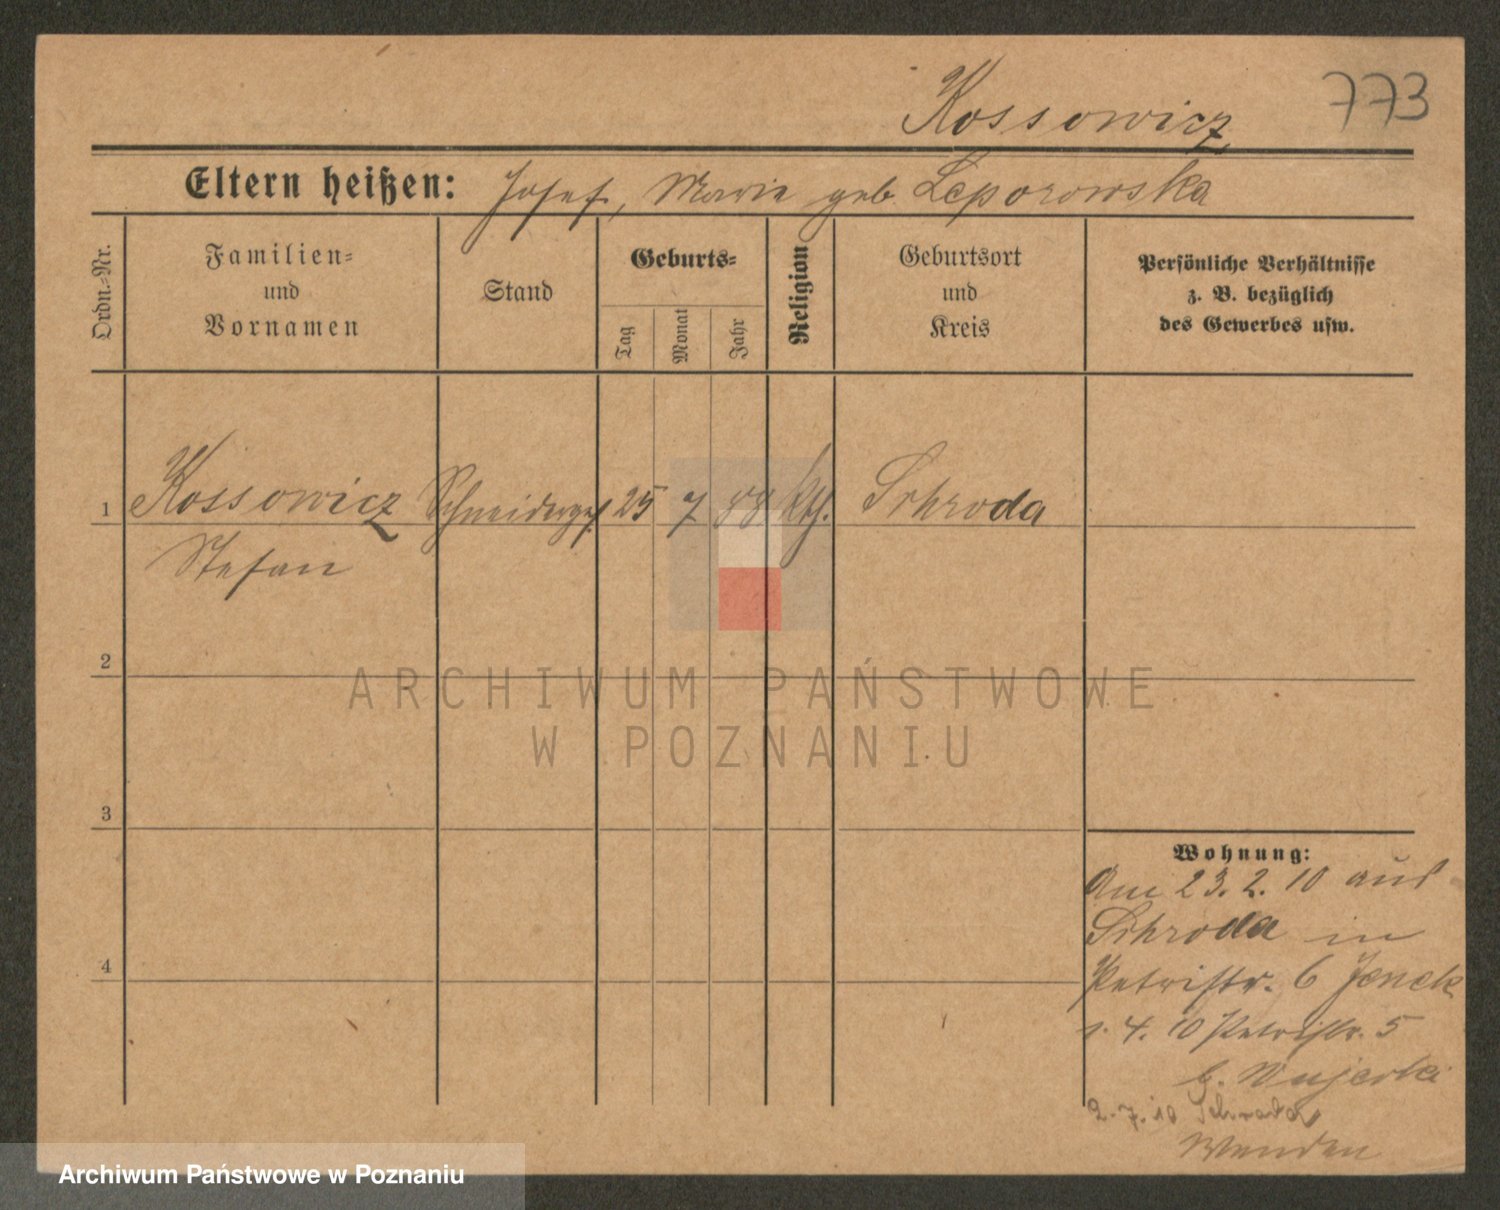 Kossowicz
773
Eltern heißen: Josef, Maria geb Leporowska
Ordn.-Nr.
Familien-
und
Vornamen
Stand
Geburts-
Tag
Monat
Jahr
Religion
Geburtsort
und
Kreis
Persönliche Verhältnisse
z. B. bezüglich
des Gewerbes usw.
1 Kossowicz Schneiderges 25 7 88 kth. Schroda
Stefan
2
ARCHIWUM PAŃSTWOWE
W POZNANIU
3
Wohnung:
Am 23. 2. 10 aus
Schroda in
4
Petristr. 6 Jenek
1. 4. 10 Petristr. 5
b.
2. 7. 10 Schroda
Archiwum Państwowe w Poznaniu